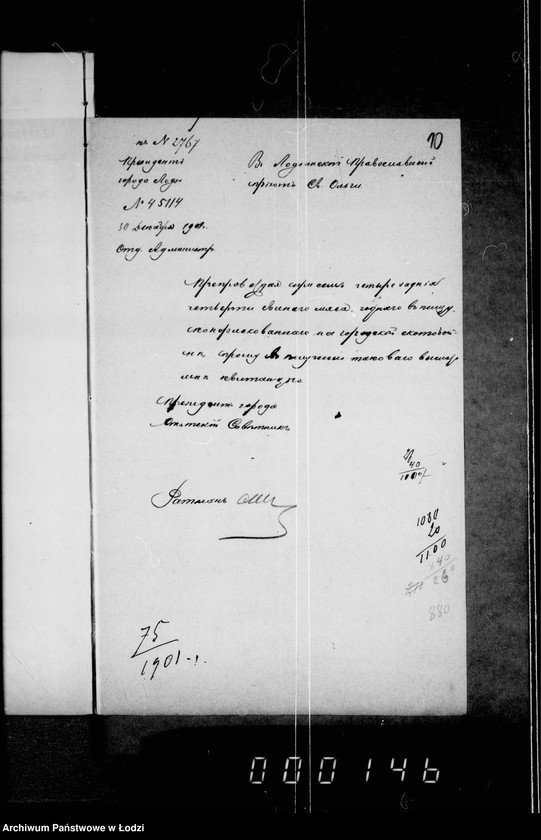 къ N 2767
10
Президентъ
города Лодзи
№ 45114
30 Декабря 1901.
Отд. Администр.
Въ Лодзинскій Православный
пріютъ Св. Ольги
Препровождая при семъ четыре заднія
четверти свинаго мяса, годнаго въ пищу,
конфискованнаго на городской скотобой-
нѣ, прошу въ полученіи таковаго
квитанцію.
Президентъ города
Статскій Совѣтникъ
Ратманъ
40
1080
20
1100
840
260
880
75
1901
000146
Archiwum Państwowe w Łodzi